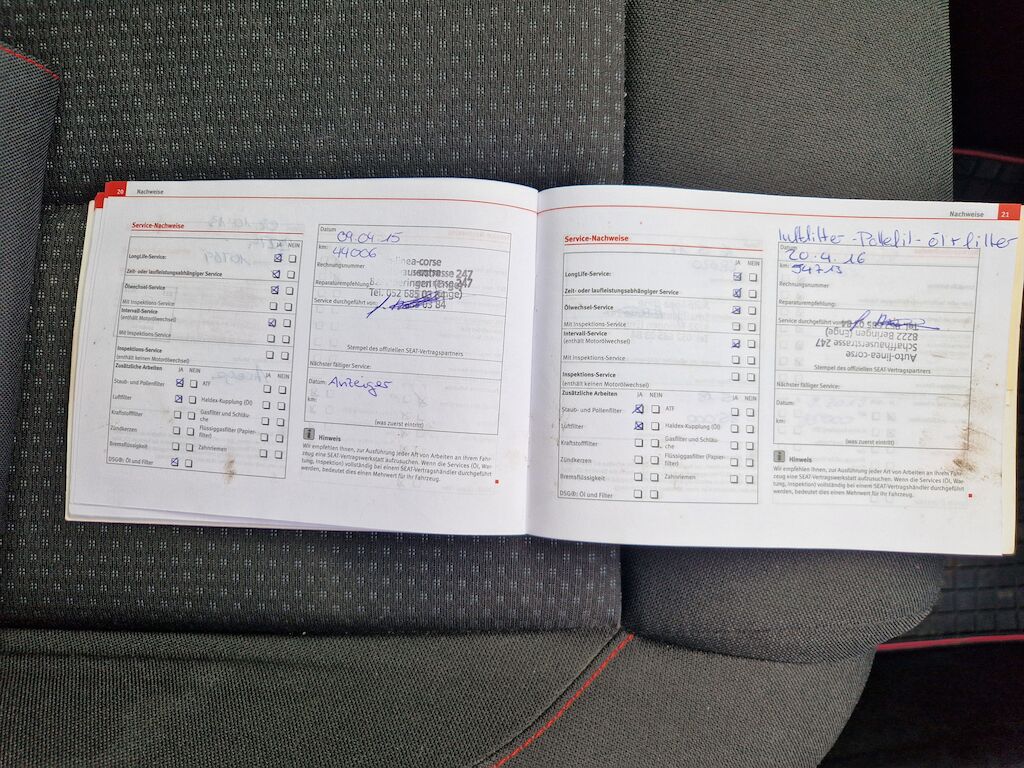 20 Nachweise
Service-Nachweise
JA NEIN
LongLife-Service:
Zeit- oder laufleistungsabhängiger Service
Ölwechsel-Service
Mit Inspektions-Service
Intervall-Service
(enthält Motorölwechsel)
Mit Inspektions-Service
Inspektions-Service
(enthält keinen Motorölwechsel)
Zusätzliche Arbeiten JA NEIN JA NEIN
Staub- und Pollenfilter ATF
Luftfilter Haldex-Kupplung (Öl)
Kraftstofffilter Gasfilter und Schläu-
che
Zündkerzen Flüssiggasfilter (Papier-
filter)
Bremsflüssigkeit Zahnriemen
DSG®: Öl und Filter
Datum 09.04.15
km: 44006
Rechnungsnummer
linea-corse
strasse 247
Reparaturempfehlung:
Tel. 052 685 03 84
Service durchgeführt von:
Stempel des offiziellen SEAT-Vertragspartners
Nächster fälliger Service:
Datum: Anzeiger
km:
(was zuerst eintritt)
Hinweis
Wir empfehlen Ihnen, zur Ausführung jeder Art von Arbeiten an Ihrem Fahr-
zeug eine SEAT-Vertragswerkstatt aufzusuchen. Wenn die Services (Öl, War-
tung, Inspektion) vollständig bei einem SEAT-Vertragshändler durchgeführt
werden, bedeutet dies einen Mehrwert für Ihr Fahrzeug.
Nachweise 21
Service-Nachweise
JA NEIN
LongLife-Service:
Zeit- oder laufleistungsabhängiger Service
Ölwechsel-Service
Mit Inspektions-Service
Intervall-Service
(enthält Motorölwechsel)
Mit Inspektions-Service
Inspektions-Service
(enthält keinen Motorölwechsel)
Zusätzliche Arbeiten JA NEIN JA NEIN
Staub- und Pollenfilter ATF
Luftfilter Haldex-Kupplung (Öl)
Kraftstofffilter Gasfilter und Schläu-
che
Zündkerzen Flüssiggasfilter (Papier-
filter)
Bremsflüssigkeit Zahnriemen
DSG®: Öl und Filter
Luftfilter - Pollefil - öl + filter
Datum 20.4.16
km: 54713
Rechnungsnummer
Reparaturempfehlung:
Service durchgeführt von:
8222 Beringen (Enge)
Schaffhauserstrasse 247
Auto-linea-corse
Stempel des offiziellen SEAT-Vertragspartners
Nächster fälliger Service:
Datum:
km:
(was zuerst eintritt)
Hinweis
Wir empfehlen Ihnen, zur Ausführung jeder Art von Arbeiten an Ihrem Fahr-
zeug eine SEAT-Vertragswerkstatt aufzusuchen. Wenn die Services (Öl, War-
tung, Inspektion) vollständig bei einem SEAT-Vertragshändler durchgeführt
werden, bedeutet dies einen Mehrwert für Ihr Fahrzeug.